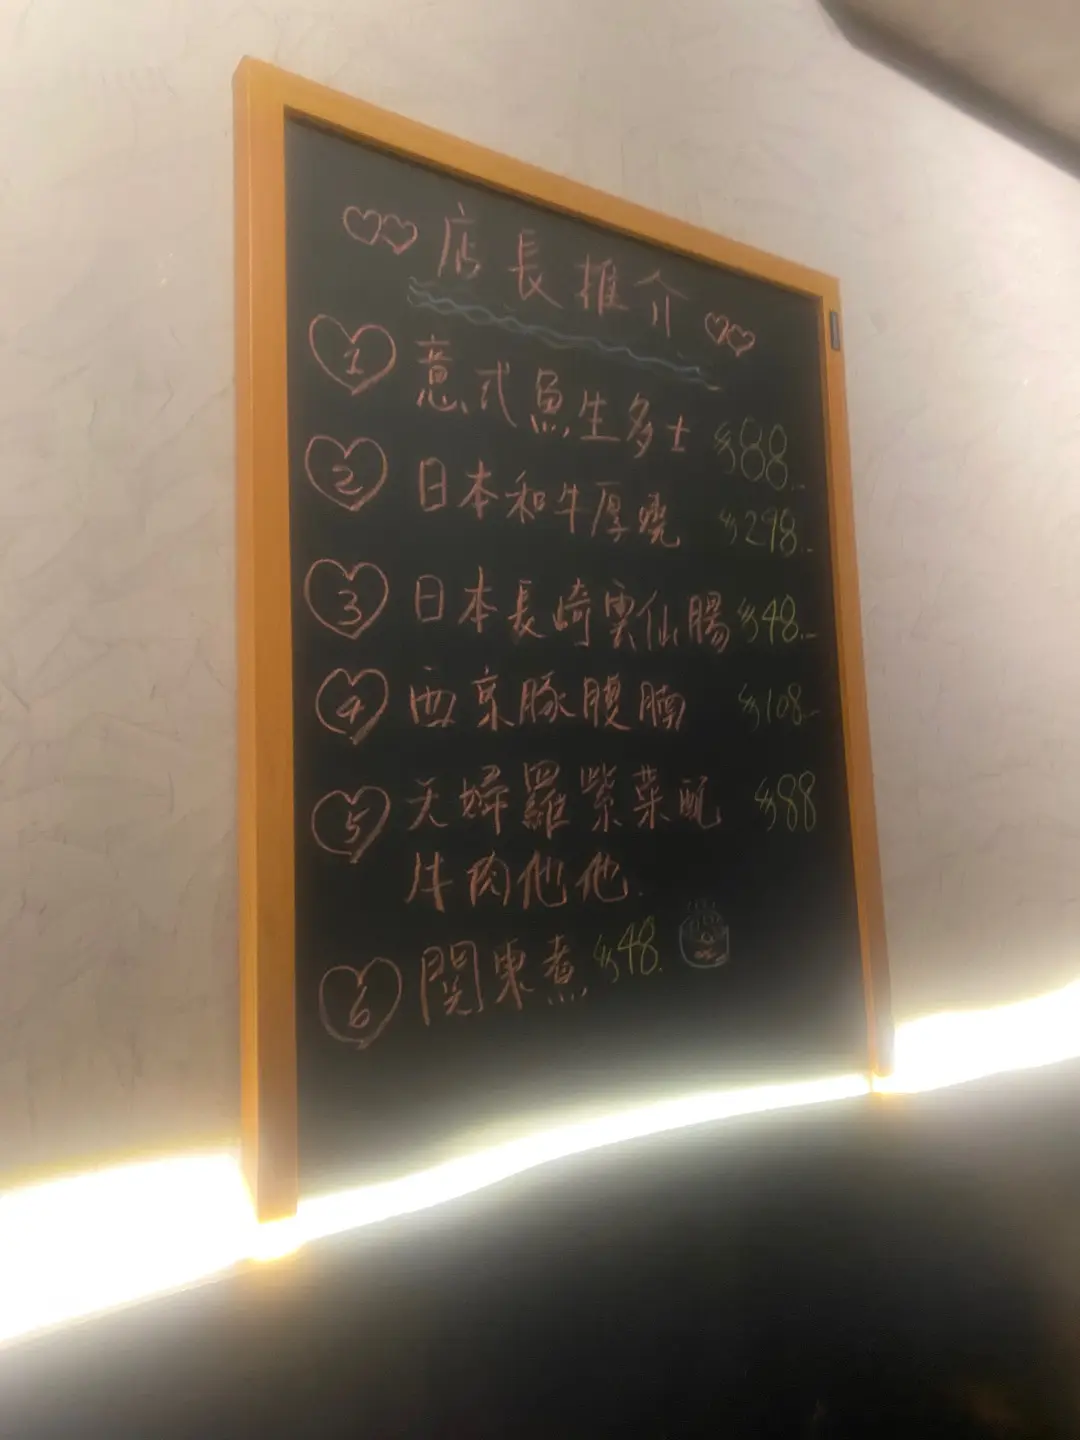 店長推介
1 意式魚生多士 $88.-
2 日本和牛厚燒 $298.-
3 日本長崎雲仙腸 $48.-
4 西京豚腹腩 $108.-
5 天婦羅紫菜配 $88
牛肉他他.
6 関東煮 $48.